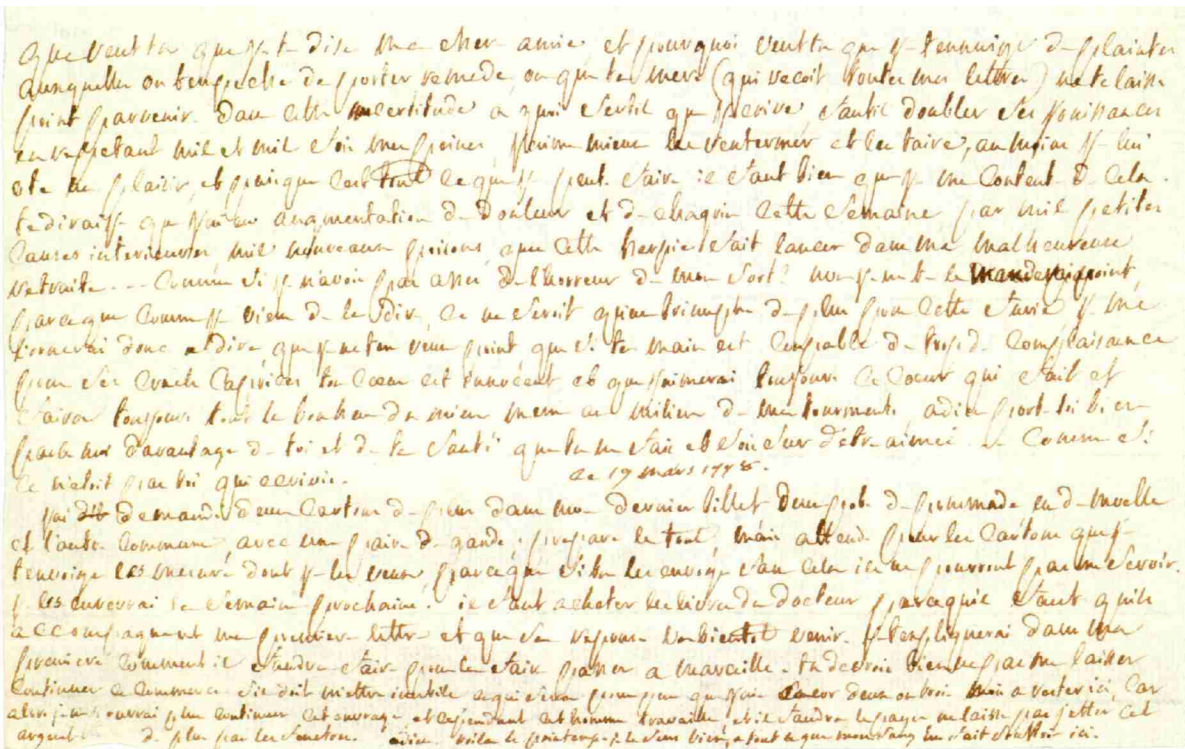 que veut tu que je te dise ma cher amie, et pourquoi veut tu que je t'ennuiye de plaintes
auxquelles on t'enpeche de porter remede, ou que ta mere (qui recoit toutes mes lettres) ne te laisse
point parvenir. dans cette incertitude a quoi sertil que j'ecrive, fautil doubler ses jouissances
en repetant mil et mil fois mes peines, j'aime mieux les renfermer et les taire, au moins je lui
ote ce plaisir, et puisque c'est tout ce que je peut faire il faut bien que je me content de cela.
te diraije que j'ai eu augmentation de douleur et de chagrin cette semaine par mil petites
causes interieures, mil nouveaux poisons, que cette herpie fait lancer dans ma malheureuse
retraite. --- comme si je n'avois pas assés de l'horreur de mon sort? non je ne te le manderai point,
parceque comme je viens de le dire, ce ne seroit qu'un triomphe de plus pour cette furie je me
bornerai donc a dire, que je ne t'en veux point que si ta main est coupable de trop de complaisance
pour ses cruels caprices ton coeur est innocent, et que j'aimerai toujours ce coeur qui fait et
faira toujours tout le bonheur du mien meme au milieu de mes tourments. adieu porte toi bien
parle moi davantage de toi et de ta santé que tu ne fais et sois sur d'etre aimée. comme si
ce n'etoit pas toi qui ecrivis.
ce 19 mars 1778.
j'ai demandé deux cartons de plus dans mon dernier billet deux pots de pommade un de moelle
et l'autre commune, avec une paire de gands, prepare le tout, mais attend pour les cartons que je
t'envoiye les mesures dont je les veux, parceque si tu les envoye sans cela ils ne pourront pas me servir.
je les enverrai la semaine prochaine. il faut acheter les livres du docteur parcequ'il faut qu'ils
accompagnent ma premiere lettre et que sa reponse va bientot venir. je t'expliquerai dans ma
premiere comment il faudra faire pour les faire passer a marseille. tu devrois bien ne pas me laisser
continuer ce commerce s'il doit m'etre inutile ce qui sera pour peu que j'aie encor deux ou trois mois a rester ici, car
alors je ne pourrai plus continuer cet ouvrage et cependant cet homme travaille et il faudra le payer ne laisse pas jetter cet
argent de plus par les fenetres. adieu voila le printemps je le sens bien, a tout ce que mon sang me fait souffrir ici.